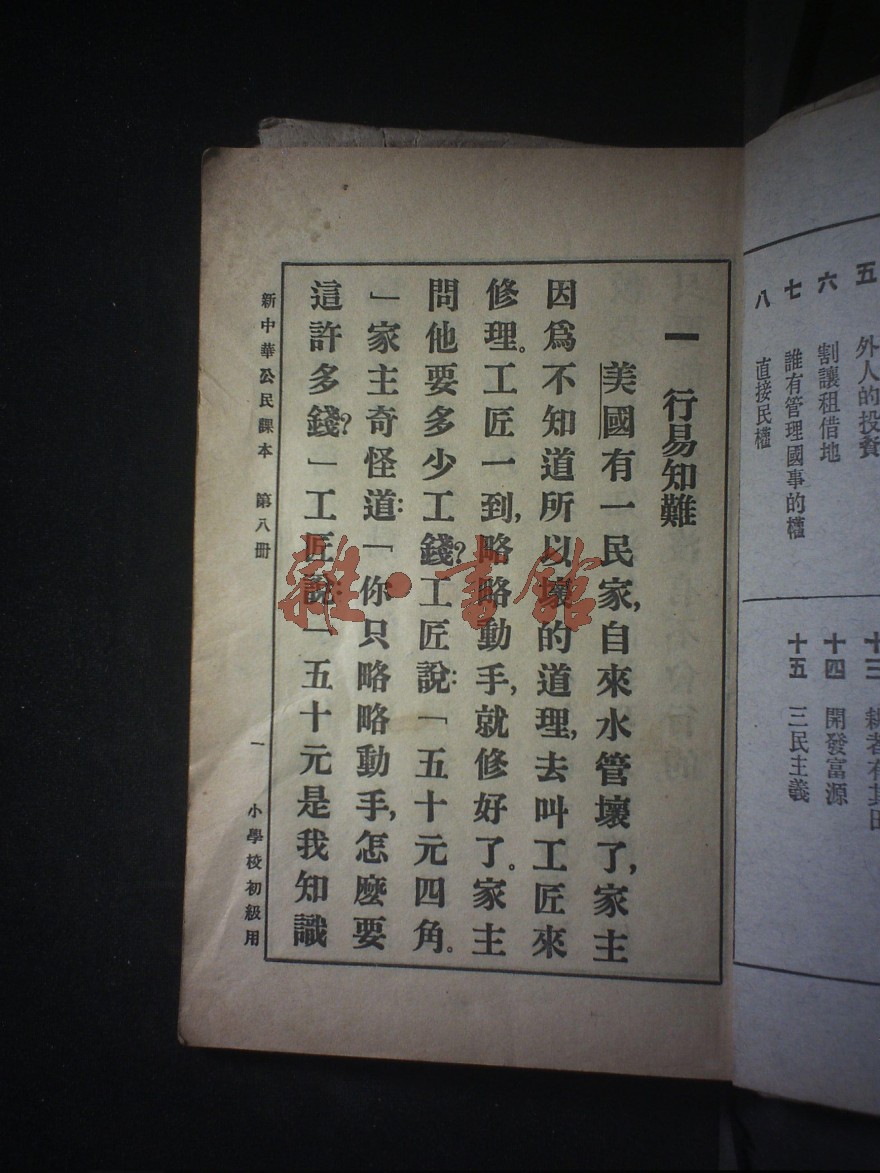 五 外人的投資
六 割讓租借地
七 誰有管理國事的權
八 直接民權
十三 耕者有其田
十四 開發富源
十五 三民主義
一 行易知難
美國有一民家,自來水管壞了,家主
因爲不知道所以壞的道理,去叫工匠來
修理。工匠一到,略略動手,就修好了。家主
問他要多少工錢?工匠說:「五十元四角。
」家主奇怪道:「你只略略動手,怎麼要
這許多錢?」工匠說:「五十元是我知識
新中華公民課本 第八册 一 小學校初級用
雜·書館